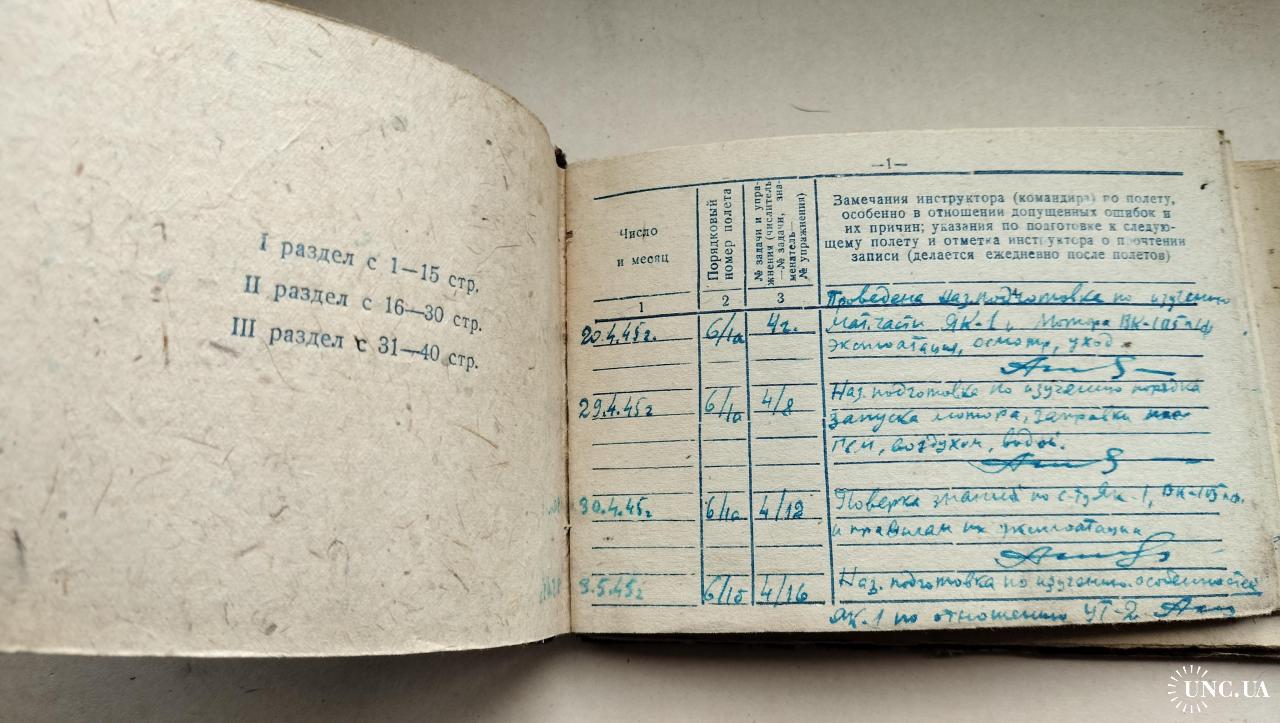 I раздел с 1—15 стр.
II раздел с 16—30 стр.
III раздел с 31—40 стр.
—1—
Число
и месяц
Порядковый
номер полета
№ задачи и упра-
жнения (числитель
—№ задачи, зна-
менатель—
№ упражнения)
Замечания инструктора (командира) по полету,
особенно в отношении допущенных ошибок и
их причин; указания по подготовке к следую-
щему полету и отметка инструктора о прочтении
записи (делается ежедневно после полетов)
1
2
3
Проведена наз. подготовка по изучению
20.4.45г. 6/1а 4г. мат.части Як-1 и мотора ВК-105
эксплоатация, осмотр, уход.
29.4.45г 6/1а 4/8 Наз. подготовка по изучению порядка
запуска мотора, заправки
воздухом, водой.
30.4.45г 6/1а 4/12 Поверка знаний по с-ту Як-1, ВК-105
и правилам их эксплоатации
3.5.45г 6/1б 4/16 Наз. подготовка по изучению особенностей
Як-1 по отношению УТ-2
UNC.UA